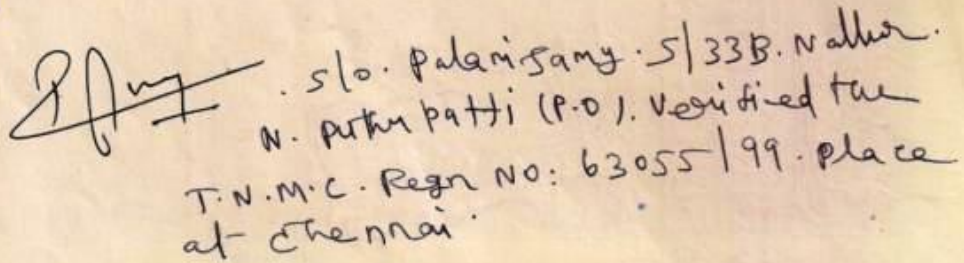 s/o. Palanisamy. 5/33B. Nallur.
N. Puthupatti (P.O). Verified the
T.N.M.C. Regn NO: 63055/99. place
at Chennai